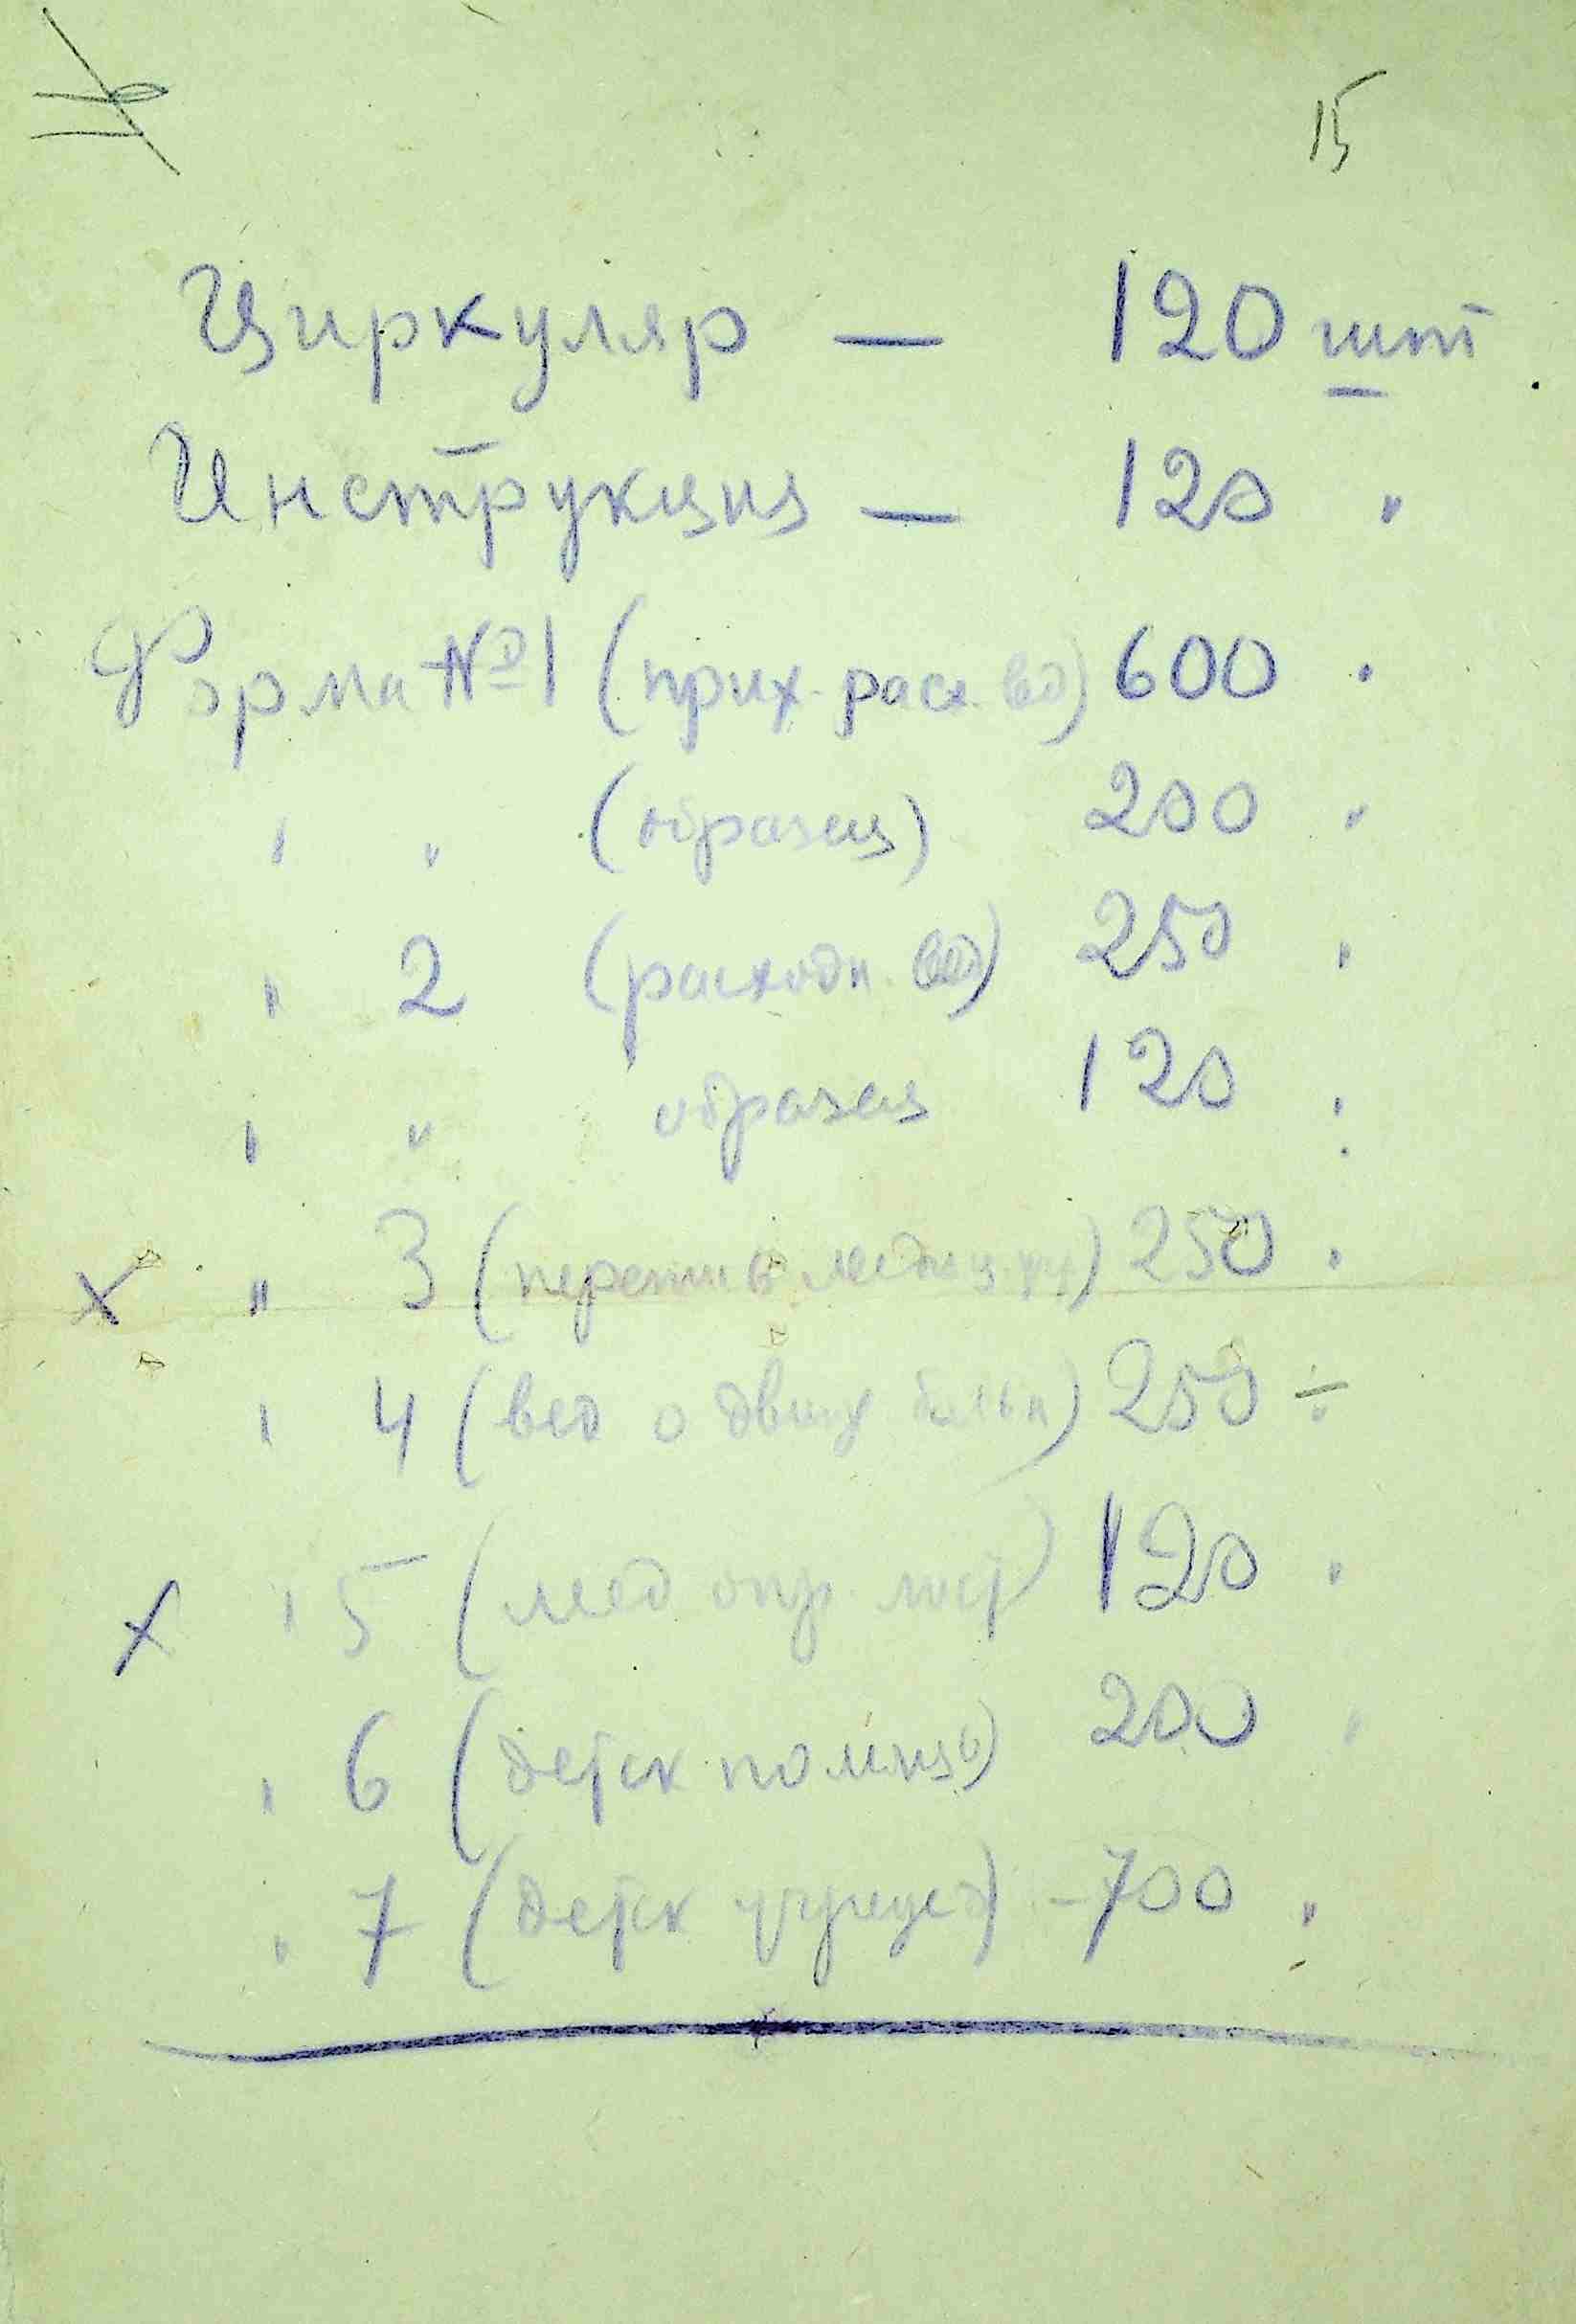 15
Циркуляр — 120 шт
Инструкция — 120 "
Форма № 1 (прих. расх. вед) 600 "
" " (образец) 200 "
" 2 (расходн. вед) 250 "
" " образец 120 "
х " 3 (перепись медиц. уч) 250 "
" 4 (вед о движ больн) 250 "
х " 5 (мед опр.) 120 "
" 6 (детск) 200 "
" 7 (детск учрежд) - 700 "